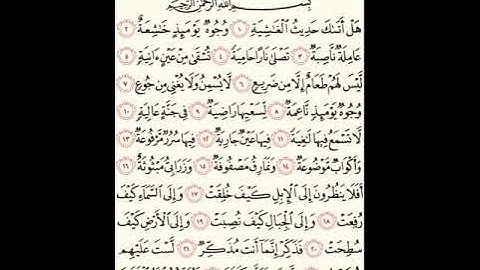 بِسْمِ ٱللَّهِ ٱلرَّحْمَٰنِ ٱلرَّحِيمِ
هَلْ أَتَىٰكَ حَدِيثُ ٱلْغَٰشِيَةِ ١ وُجُوهٌ يَوْمَئِذٍ خَٰشِعَةٌ ٢
عَامِلَةٌ نَّاصِبَةٌ ٣ تَصْلَىٰ نَارًا حَامِيَةً ٤ تُسْقَىٰ مِنْ عَيْنٍ ءَانِيَةٍ ٥
لَّيْسَ لَهُمْ طَعَامٌ إِلَّا مِن ضَرِيعٍ ٦ لَّا يُسْمِنُ وَلَا يُغْنِى مِن جُوعٍ ٧
وُجُوهٌ يَوْمَئِذٍ نَّاعِمَةٌ ٨ لِّسَعْيِهَا رَاضِيَةٌ ٩ فِى جَنَّةٍ عَالِيَةٍ ١٠
لَّا تَسْمَعُ فِيهَا لَٰغِيَةً ١١ فِيهَا عَيْنٌ جَارِيَةٌ ١٢ فِيهَا سُرُرٌ مَّرْفُوعَةٌ ١٣
وَأَكْوَابٌ مَّوْضُوعَةٌ ١٤ وَنَمَارِقُ مَصْفُوفَةٌ ١٥ وَزَرَابِىُّ مَبْثُوثَةٌ ١٦
أَفَلَا يَنظُرُونَ إِلَى ٱلْإِبِلِ كَيْفَ خُلِقَتْ ١٧ وَإِلَى ٱلسَّمَآءِ كَيْفَ
رُفِعَتْ ١٨ وَإِلَى ٱلْجِبَالِ كَيْفَ نُصِبَتْ ١٩ وَإِلَى ٱلْأَرْضِ كَيْفَ
سُطِحَتْ ٢٠ فَذَكِّرْ إِنَّمَآ أَنتَ مُذَكِّرٌ ٢١ لَّسْتَ عَلَيْهِم